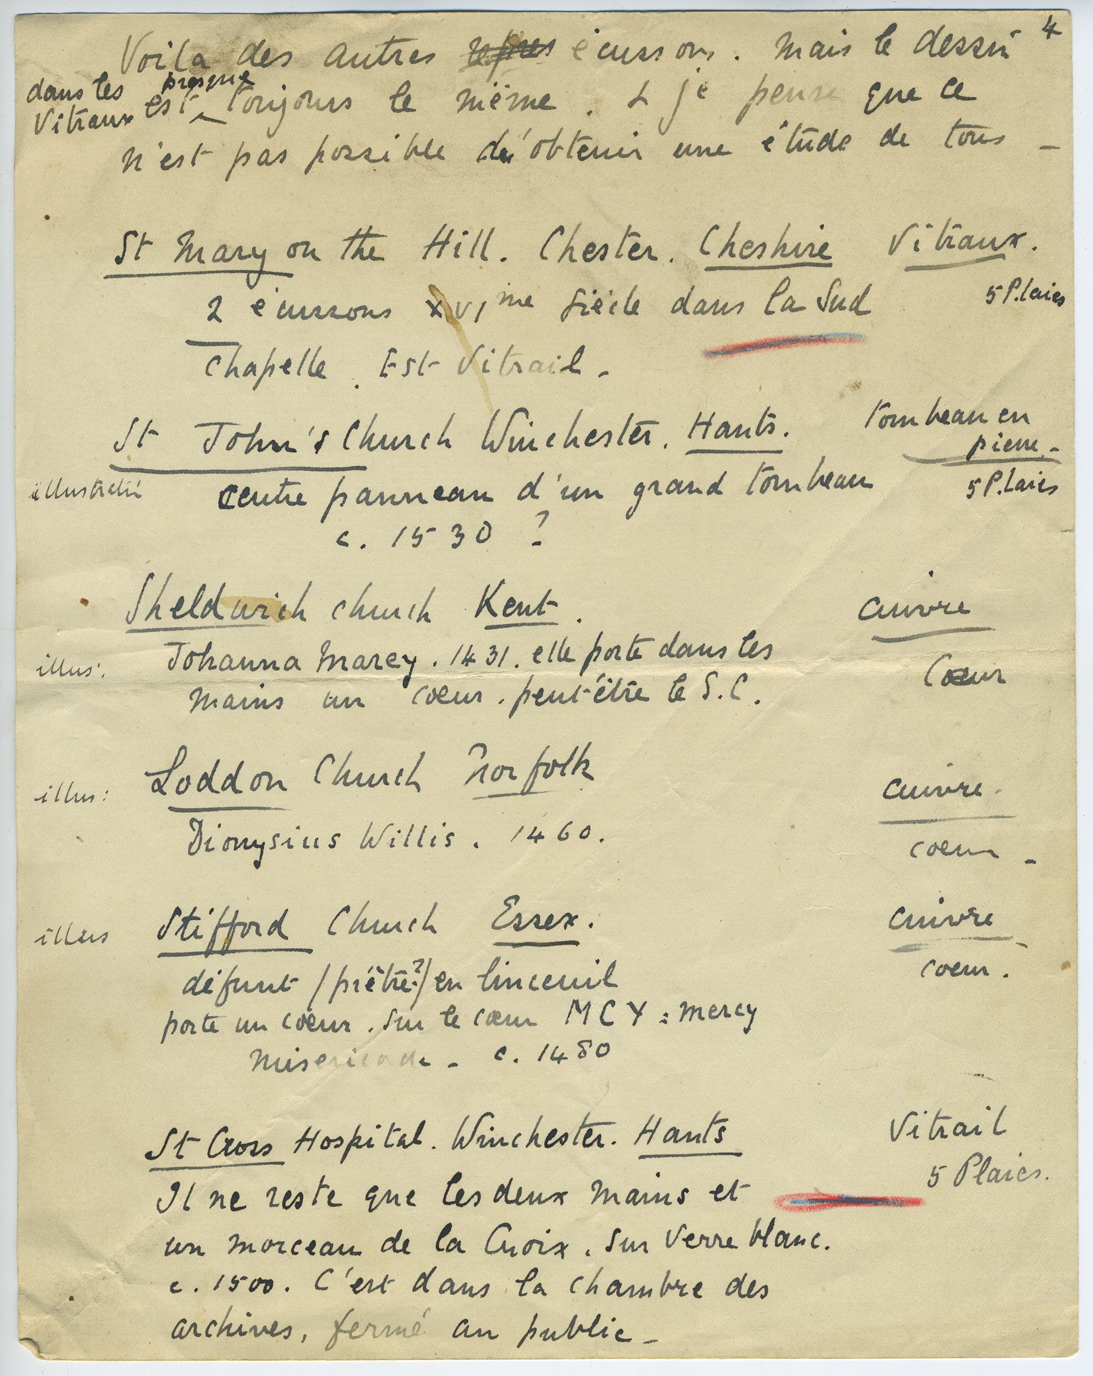 4
Voila des autres écussons. Mais le dessin
dans les vitraux est presque toujours le même. & je pense que ce
n'est pas possible d'obtenir une étude de tous –
St Mary on the Hill. Chester. Cheshire Vitraux.
2 écussons XVIme Siècle dans la Sud 5 Plaies
Chapelle. Est Vitrail –
St John's Church Winchester. Hants. tombeau en
pierre –
illustrétié centre panneau d'un grand tombeau 5 Plaies
c. 1530 ?
Sheldwich church Kent. Cuivre
illus: Johanna Marcy. 1431. elle porte dans les Coeur
mains un coeur. peut-être le S.C.
Loddon Church Norfolk
illus: cuivre.
Dionysius Willis. 1460. coeur –
illus Stifford Church Essex. Cuivre
défunt (prêtre?) en linceuil coeur.
porte un coeur. Sur le coeur MCY = mercy
Misericorde – c. 1480
St Cross Hospital. Winchester. Hants Vitrail
Il ne reste que les deux mains et 5 Plaies.
un morceau de la Croix. Sur Verre blanc.
c. 1500. C'est dans la chambre des
archives, fermé au public –